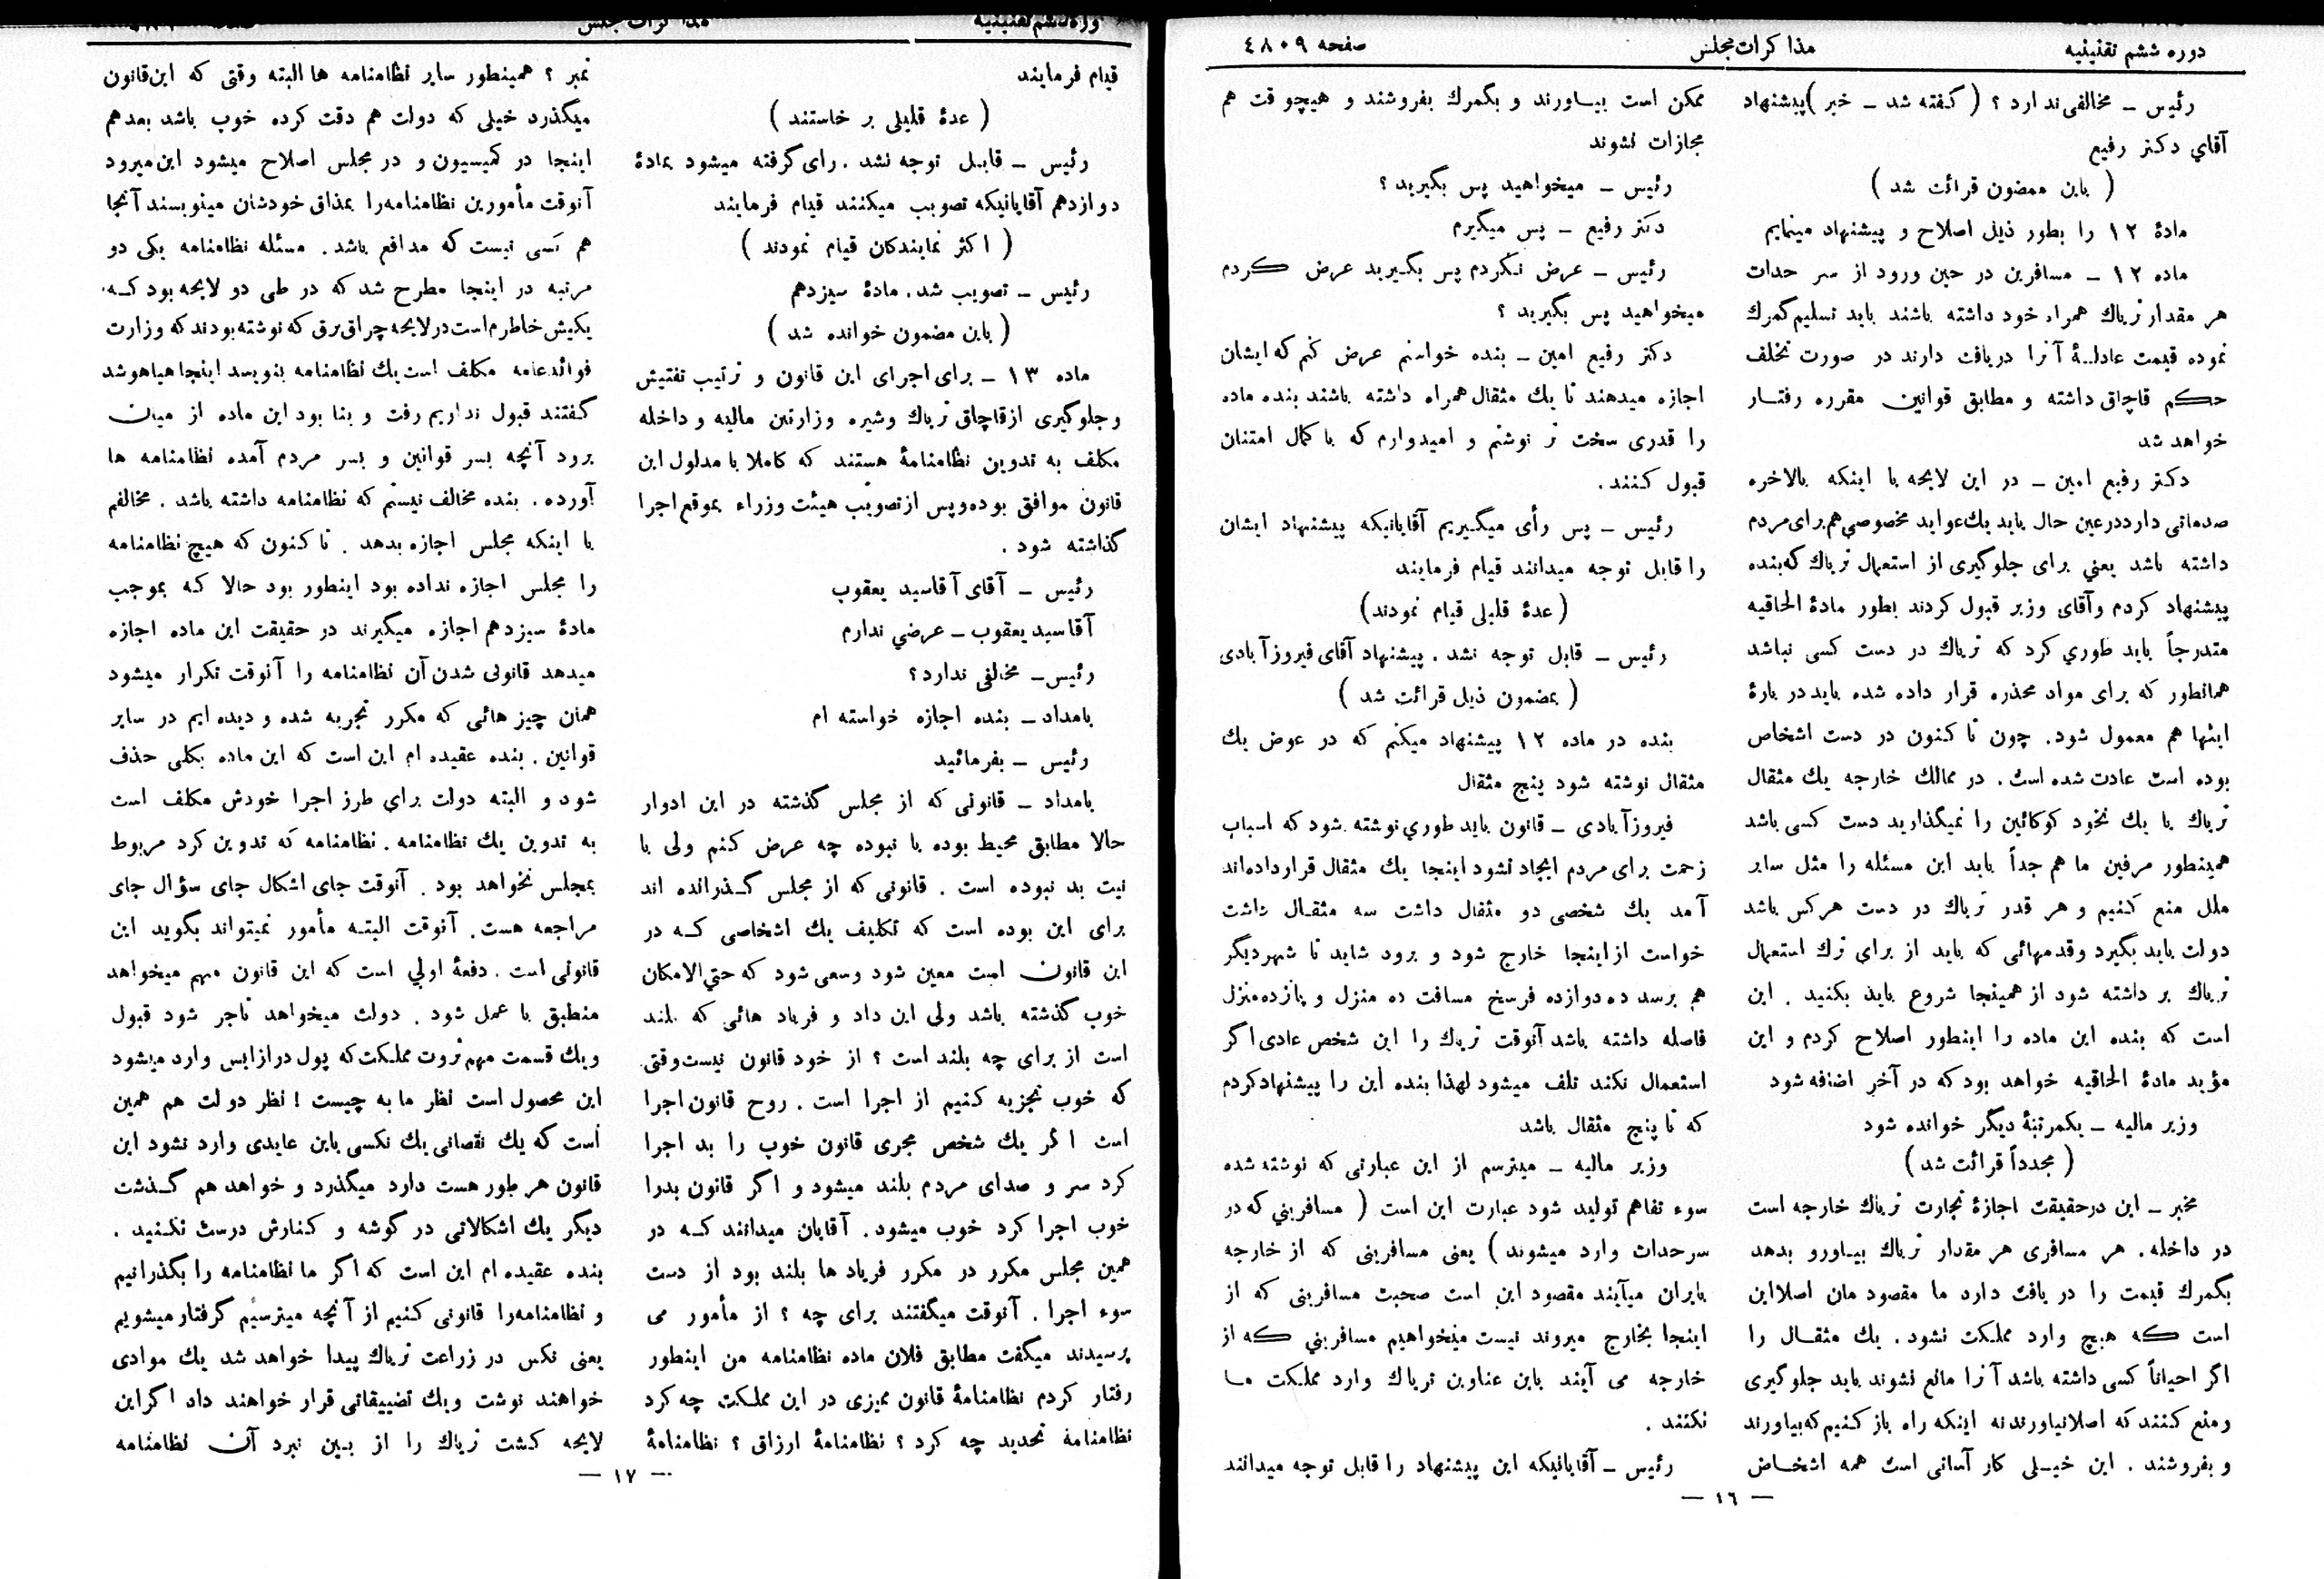 دوره ششم تقنینیه
مذاکرات مجلس
صفحه ٤٨٠٩
رئیس ـ مخالفی ندارد ؟ ( گفته شد ـ خیر ) پیشنهاد
آقاي دکتر رفیع
( باین مضمون قرائت شد )
مادۀ ١٢ را بطور ذیل اصلاح و پیشنهاد مینمایم
ماده ١٢ ـ مسافرین در حین ورود از سر حدات
هر مقدار تریاك همراه خود داشته باشند باید تسلیم گمرك
نموده قیمت عادلۀ آنرا دریافت دارند در صورت تخلف
حکم قاچاق داشته و مطابق قوانین مقرره رفتار
خواهد شد
دکتر رفیع امین ـ در این لایحه با اینکه بالاخره
صدماتی دارد در عین حال باید یك عواید مخصوصي هم برای مردم
داشته باشد یعني برای جلوگیری از استعمال تریاك که بنده
پیشنهاد کردم و آقای وزیر قبول کردند بطور مادۀ الحاقیه
متدرجاً باید طوري کرد که تریاك در دست کسی نباشد
همانطور که برای مواد مخدره قرار داده شده باید در بارۀ
اینها هم معمول شود. چون تا کنون در دست اشخاص
بوده است عادت شده است. در ممالك خارجه یك مثقال
تریاك یا یك نخود کوکائین را نمیگذارید دست کسی باشد
همینطور مرفین ما هم جداً باید این مسئله را مثل سایر
ملل منع کنیم و هر قدر تریاك در دست هرکس باشد
دولت باید بگیرد و قدمهائی که باید از براي ترك استعمال
تریاك بر داشته شود از همینجا شروع باید بکنید . این
است که بنده این ماده را اینطور اصلاح کردم و این
مؤید مادۀ الحاقیه خواهد بود که در آخر اضافه شود
وزیر مالیه ـ یکمرتبۀ دیگر خوانده شود
( مجدداً قرائت شد )
مخبر ـ این در حقیقت اجازۀ تجارت تریاك خارجه است
در داخله. هر مسافری هر مقدار تریاك بیاورو بدهد
بگمرك قیمت را دریافت دارد ما مقصود مان اصلا این
است که هیچ وارد مملکت نشود. یك مثقال را
اگر احیاناً کسی داشته باشد آنرا مانع نشوند باید جلوگیری
و منع کنند که اصلا نیاورند نه اینکه راه باز کنیم که بیاورند
و بفروشند . این خیلی کار آسانی است همه اشخاص
ممکن است بیاورند و بگمرك بفروشند و هیچوقت هم
مجازات نشوند
رئیس ـ میخواهید پس بگیرید ؟
دکتر رفیع ـ پس میگیرم
رئیس ـ عرض نکردم پس بگیرید عرض کردم
میخواهید پس بگیرید ؟
دکتر رفیع امین ـ بنده خواستم عرض کنم که ایشان
اجازه میدهند تا یك مثقال همراه داشته باشند بنده ماده
را قدری سخت تر نوشتم و امیدوارم که با کمال امتنان
قبول کنند .
رئیس ـ پس رأی میگیریم آقایانیکه پیشنهاد ایشان
را قابل توجه میدانند قیام فرمایند
( عدۀ قلیلی قیام نمودند )
رئیس ـ قابل توجه نشد . پیشنهاد آقای فیروزآبادی
( بمضمون ذیل قرائت شد )
بنده در ماده ١٢ پیشنهاد میکنم که در عوض یك
مثقال نوشته شود پنج مثقال
فیروزآبادی ـ قانون باید طوري نوشته شود که اسباب
زحمت برای مردم ایجاد نشود اینجا یك مثقال قرار داده اند
آمد یك شخصی دو مثقال داشت سه مثقال داشت
خواست از اینجا خارج شود و برود شاید تا شهر دیگر
هم برسد ده دوازده فرسخ مسافت ده منزل و پانزده منزل
فاصله داشته باشد آنوقت تریاك را این شخص عادی اگر
استعمال نکند تلف میشود لهذا بنده این را پیشنهاد کردم
که تا پنج مثقال باشد
وزیر مالیه ـ میترسم از این عبارتی که نوشته شده
سوء تفاهم تولید شود عبارت این است ( مسافریني که در
سرحدات وارد میشوند ) یعنی مسافرینی که از خارجه
بایران میآیند مقصود این است صحبت مسافرینی که از
اینجا بخارج میروند نیست میخواهیم مسافریني که از
خارجه می آیند باین عناوین تریاك وارد مملکت ما
نکنند .
رئیس ـ آقایانیکه این پیشنهاد را قابل توجه میدانند
— ١٦ —
دوره ششم تقنینیه
مذاکرات مجلس
قیام فرمایند
( عدۀ قلیلی بر خاستند )
رئیس ـ قابل توجه نشد . رای گرفته میشود بمادۀ
دوازدهم آقایانیکه تصویب میکنند قیام فرمایند
( اکثر نمایندکان قیام نمودند )
رئیس ـ تصویب شد. مادۀ سیزدهم
( باین مضمون خوانده شد )
ماده ١٣ ـ برای اجرای این قانون و ترتیب تفتیش
و جلوگیری از قاچاق تریاك و شیره وزارتین مالیه و داخله
مکلف به تدوین نظامنامۀ هستند که کاملا با مدلول این
قانون موافق بوده و پس از تصویب هیئت وزراء بموقع اجرا
گذاشته شود .
رئیس ـ آقای آقاسید یعقوب
آقاسید یعقوب ـ عرضي ندارم
رئیس ـ مخالفی ندارد ؟
بامداد ـ بنده اجازه خواسته ام
رئیس ـ بفرمائید
بامداد ـ قانونی که از مجلس گذشته در این ادوار
حالا مطابق محیط بوده یا نبوده چه عرض کنم ولی با
نیت بد نبوده است . قانونی که از مجلس گذرانده اند
برای این بوده است که تکلیف یك اشخاصی که در
این قانون است معین شود وسعی شود که حتي الامکان
خوب گذشته باشد ولی این داد و فریاد هائی که بلند
است از برای چه بلند است ؟ از خود قانون نیست وقتی
که خوب تجزیه کنیم از اجرا است . روح قانون اجرا
است اگر یك شخص مجری قانون خوب را بد اجرا
کرد سر و صدای مردم بلند میشود و اگر قانون بدرا
خوب اجرا کرد خوب میشود. آقایان میدانند که در
همین مجلس مکرر در مکرر فریاد ها بلند بود از دست
سوء اجرا . آنوقت میگفتند برای چه ؟ از مأمور می
پرسیدند میگفت مطابق فلان ماده نظامنامه من اینطور
رفتار کردم نظامنامۀ قانون ممیزی در این مملکت چه کرد
نظامنامۀ تحدید چه کرد ؟ نظامنامۀ ارزاق ؟ نظامنامۀ
نمبر ؟ همینطور سایر نظامنامه ها البته وقتی که این قانون
میگذرد خیلی که دولت هم دقت کرده خوب باشد بعد هم
اینجا در کمیسیون و در مجلس اصلاح میشود این میرود
آنوقت مأمورین نظامنامه را بمذاق خودشان مینویسند آنجا
هم کسی نیست که مدافع باشد. مسئله نظامنامه یکی دو
مرتبه در اینجا مطرح شد که در طی دو لایحه بود که
یکیش خاطرم است در لایحه چراق برق که نوشته بودند که وزارت
فوائد عامه مکلف است یك نظامنامه بنویسد اینجا هیاهو شد
گفتند قبول نداریم رفت و بنا بود این ماده از میان
برود آنچه بسر قوانین و بسر مردم آمده نظامنامه ها
آورده. بنده مخالف نیستم که نظامنامه داشته باشد . مخالفم
با اینکه مجلس اجازه بدهد . تا کنون که هیچ نظامنامه
را مجلس اجازه نداده بود اینطور بود حالا که بموجب
مادۀ سیزدهم اجازه میگیرند در حقیقت این ماده اجازه
میدهد قانونی شدن آن نظامنامه را آنوقت تکرار میشود
همان چیز هائی که مکرر تجربه شده و دیده ایم در سایر
قوانین . بنده عقیده ام این است که این ماده بکلی حذف
شود و البته دولت براي طرز اجرا خودش مکلف است
به تدوین یك نظامنامه. نظامنامه که تدوین کرد مربوط
بمجلس نخواهد بود . آنوقت جای اشکال جای سؤال جای
مراجعه هست. آنوقت البته مأمور نمیتواند بگوید این
قانونی است . دفعۀ اولي است که این قانون مهم میخواهد
منطبق با عمل شود . دولت میخواهد تاجر شود قبول
ویك قسمت مهم ثروت مملکت که پول در ازایس وارد میشود
این محصول است نظر ما به چیست ! نظر دولت هم همین
است که یك نقصانی یك نکسی باین عایدی وارد نشود این
قانون هر طور هست دارد میگذرد و خواهد هم گذشت
دیگر یك اشکالاتی در گوشه و کنارش درست نکنید .
بنده عقیده ام این است که اگر ما نظامنامه را بگذرانیم
و نظامنامه را قانونی کنیم از آنچه میترسیم گرفتار میشویم
یعنی نکس در زراعت تریاك پیدا خواهد شد یك موادی
خواهند نوشت ویك تضییقاتی قرار خواهند داد اگر این
لایحه کشت تریاك را از بین نبرد آن نظامنامه
— ١٧ —